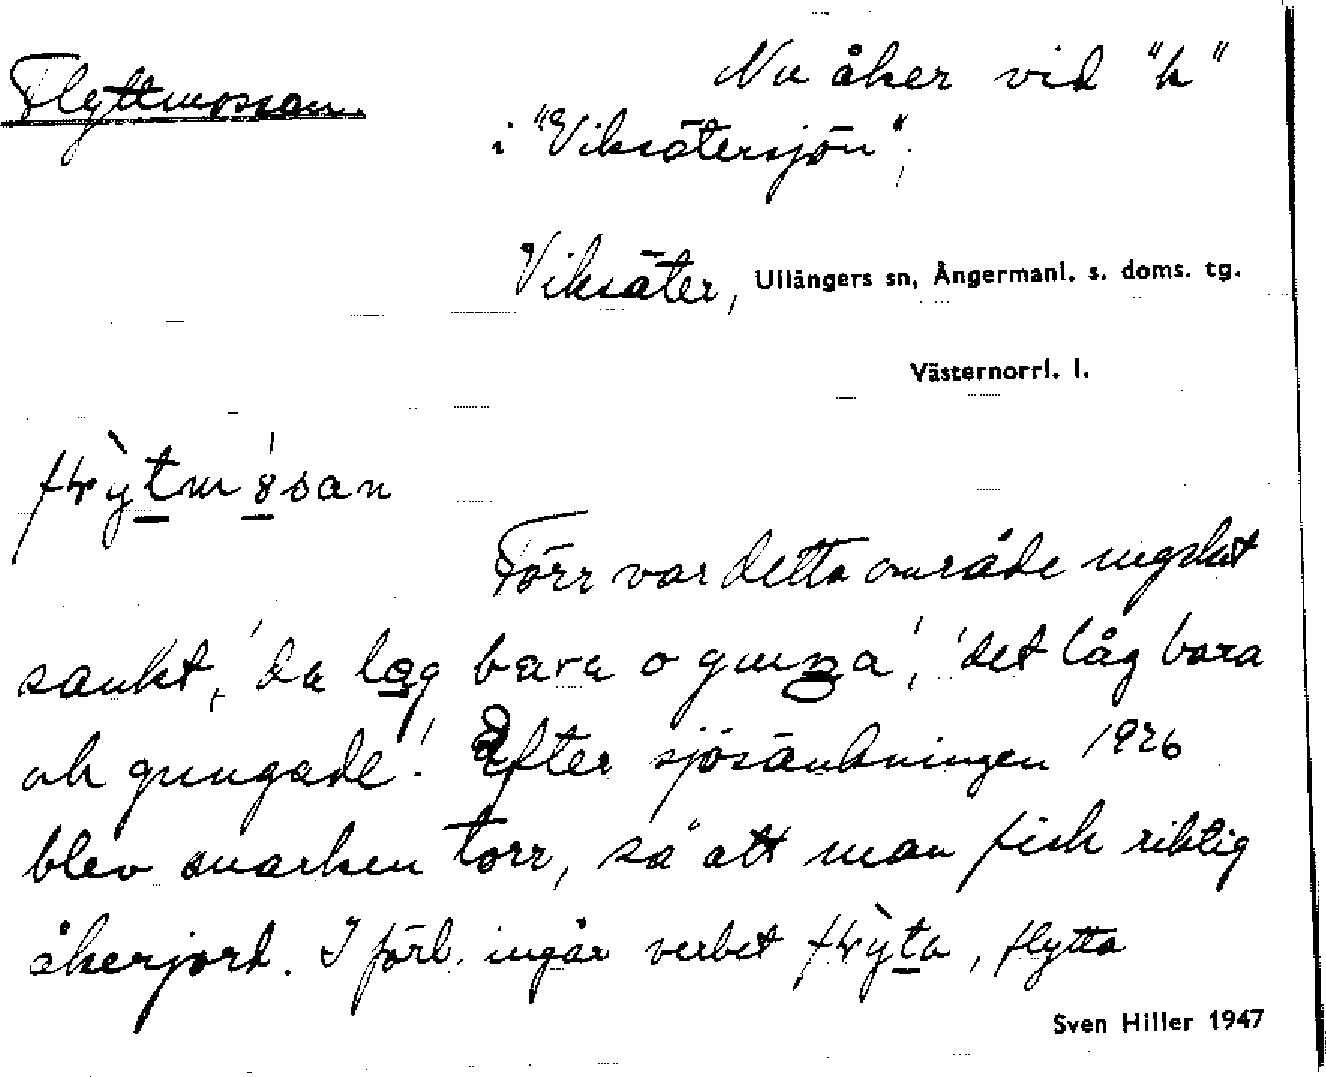 Flyttmossan.
Nu åker vid "k"
i "Viksätersjön",
Viksäter, Ullångers sn, Ångermanl. s. doms. tg.
Västernorrl. l.
Förr var detta område mycket
sankt, 'da låg bara o guŋa', 'det låg bara
och gungade'. Efter sjösänkningen 1926
blev marken torr, så att man fick riktig
åkerjord. I förl. ingår verbet , flytta
Sven Hiller 1947